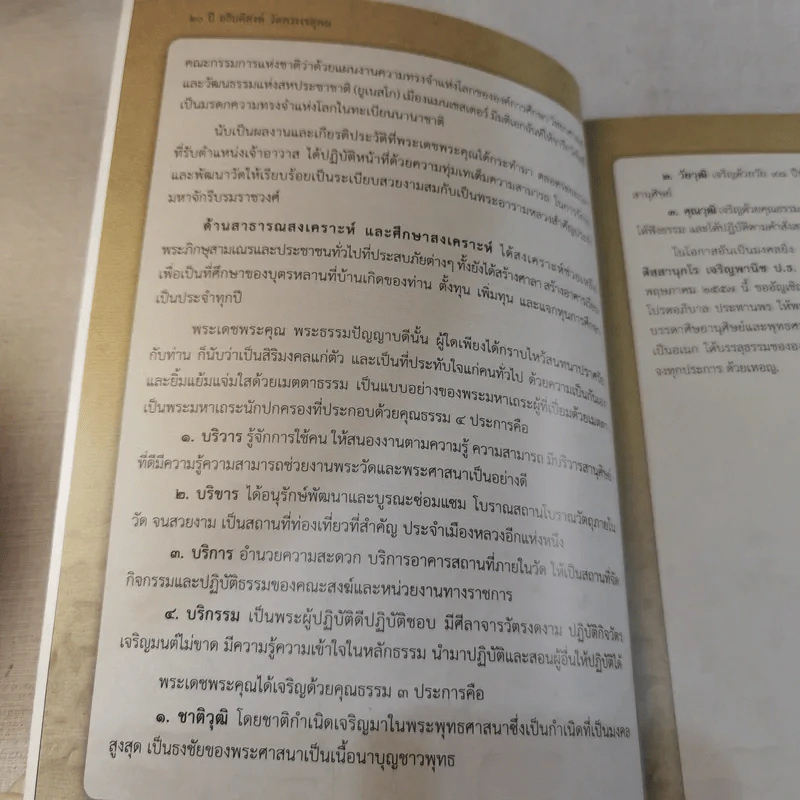 ๒๐ ปี อธิบดีสงฆ์ วัดพระเชตุพน
คณะกรรมการแห่งชาติว่าด้วยแผนงานความทรงจำแห่งโลกขององค์การศึกษา วิทยาศาสตร์
และวัฒนธรรมแห่งสหประชาชาติ (ยูเนสโก) เมืองแมนเชสเตอร์ มีมติเอกฉันท์ให้จารึกวัดโพธิ์
เป็นมรดกความทรงจำแห่งโลกในทะเบียนนานาชาติ
นับเป็นผลงานและเกียรติประวัติที่พระเดชพระคุณได้กระทำมา ตลอดระยะเวลา
ที่รับตำแหน่งเจ้าอาวาส ได้ปฏิบัติหน้าที่ด้วยความทุ่มเทเต็มความสามารถ ในการ
และพัฒนาวัดให้เรียบร้อยเป็นระเบียบสวยงามสมกับเป็นพระอารามหลวงสำคัญประจำ
มหาจักรีบรมราชวงศ์
ด้านสาธารณสงเคราะห์ และศึกษาสงเคราะห์ ได้สงเคราะห์ช่วยเหลือ
พระภิกษุสามเณรและประชาชนทั่วไปที่ประสบภัยต่างๆ ทั้งยังได้สร้างศาลา สร้างอาคารเรียน
เพื่อเป็นที่ศึกษาของบุตรหลานที่บ้านเกิดของท่าน ตั้งทุน เพิ่มทุน และแจกทุนการศึกษา
เป็นประจำทุกปี
พระเดชพระคุณ พระธรรมปัญญาบดีนั้น ผู้ใดเพียงได้กราบไหว้สนทนาปราศรัย
กับท่าน ก็นับว่าเป็นสิริมงคลแก่ตัว และเป็นที่ประทับใจแก่คนทั่วไป ด้วยความเป็นกันเอง
และยิ้มแย้มแจ่มใสด้วยเมตตาธรรม เป็นแบบอย่างของพระมหาเถระผู้ที่เปี่ยมด้วยเมตตา
เป็นพระมหาเถระนักปกครองที่ประกอบด้วยคุณธรรม ๔ ประการคือ
๑. บริวาร รู้จักการใช้คน ให้สนองงานตามความรู้ ความสามารถ มีบริวารสานุศิษย์
ที่ดีมีความรู้ความสามารถช่วยงานพระวัดและพระศาสนาเป็นอย่างดี
๒. บริขาร ได้อนุรักษ์พัฒนาและบูรณะซ่อมแซม โบราณสถานโบราณวัตถุภายใน
วัด จนสวยงาม เป็นสถานที่ท่องเที่ยวที่สำคัญ ประจำเมืองหลวงอีกแห่งหนึ่ง
๓. บริการ อำนวยความสะดวก บริการอาคารสถานที่ภายในวัด ให้เป็นสถานที่จัด
กิจกรรมและปฏิบัติธรรมของคณะสงฆ์และหน่วยงานทางราชการ
๔. บริกรรม เป็นพระผู้ปฏิบัติดีปฏิบัติชอบ มีศีลาจารวัตรงดงาม ปฏิบัติกิจวัตร
เจริญมนต์ไม่ขาด มีความรู้ความเข้าใจในหลักธรรม นำมาปฏิบัติและสอนผู้อื่นให้ปฏิบัติได้
พระเดชพระคุณได้เจริญด้วยคุณธรรม ๓ ประการคือ
๑. ชาติวุฒิ โดยชาติกำเนิดเจริญมาในพระพุทธศาสนาซึ่งเป็นกำเนิดที่เป็นมงคล
สูงสุด เป็นธงชัยของพระศาสนาเป็นเนื้อนาบุญชาวพุทธ
๒. วัยวุฒิ เจริญด้วยวัย ๙๘ ปี
สานุศิษย์
๓. คุณวุฒิ เจริญด้วยคุณธรรม
ได้ฟังธรรม และได้ปฏิบัติตามคำสั่งส
ในโอกาสอันเป็นมงคลยิ่ง
ติสฺสานุกโร เจริญพานิช ป.ธ.
พฤษภาคม ๒๕๕๗ นี้ ขออัญเชิ
โปรดอภิบาล ประทานพร ให้พ
บรรดาศิษยานุศิษย์และพุทธศา
เป็นอเนก ได้บรรลุธรรมขององ
จงทุกประการ ด้วยเทอญ.